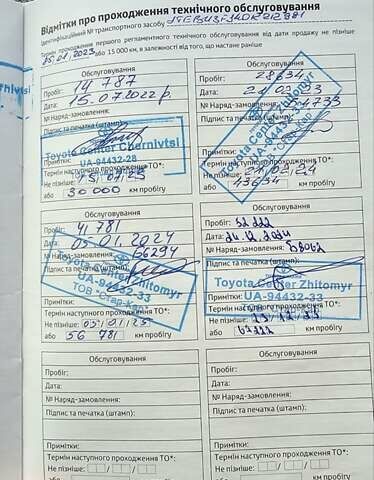 Відмітки про проходження технічного обслуговування
Ідентифікаційний № транспортного засобу
Термін проходження першого регламентного технічного обслуговування від дати продажу не пізніше
15.01.2023 або 15 000 км, в залежності від того, що настане раніше
Обслуговування
Пробіг: 14 787
Дата: 15.07.2022 р.
№ Наряд-замовлення:
Підпис та печатка (штамп):
Toyota Center Chernivtsi
UA-94432-28
Термін наступного проходження ТО*:
Не пізніше: 15.01.23
або 30 000 км пробігу
Обслуговування
Пробіг: 28634
Дата: 21.02.23
№ Наряд-замовлення: 04733
Підпис та печатка (штамп):
Toyota Center Zhitomyr
Примітки:
Термін наступного проходження ТО*:
Не пізніше: 21.02.24
або 43634 км пробігу
Обслуговування
Пробіг: 41781
Дата: 05.01.2024
№ Наряд-замовлення: 56294
Підпис та печатка (штамп):
Toyota Center Zhitomyr
UA-94432-33
ТОВ "Стар-Кей"
Примітки:
Термін наступного проходження ТО*:
Не пізніше: 05.01.25
або 56 781 км пробігу
Обслуговування
Пробіг: 52222
Дата: 24.12.2024
№ Наряд-замовлення: 58062
Підпис та печатка (штамп):
Toyota Center Zhitomyr
Примітки: UA-94432-33
Термін наступного проходження ТО*:
Не пізніше:
або 67222 км пробігу
Обслуговування
Пробіг:
Дата:
№ Наряд-замовлення:
Підпис та печатка (штамп):
Примітки:
Термін наступного проходження ТО*:
Не пізніше:
або км пробігу
Обслуговування
Пробіг:
Дата:
№ Наряд-замовлення:
Підпис та печатка (штамп):
Примітки:
Термін наступного проходження ТО*:
Не пізніше:
або км пробігу